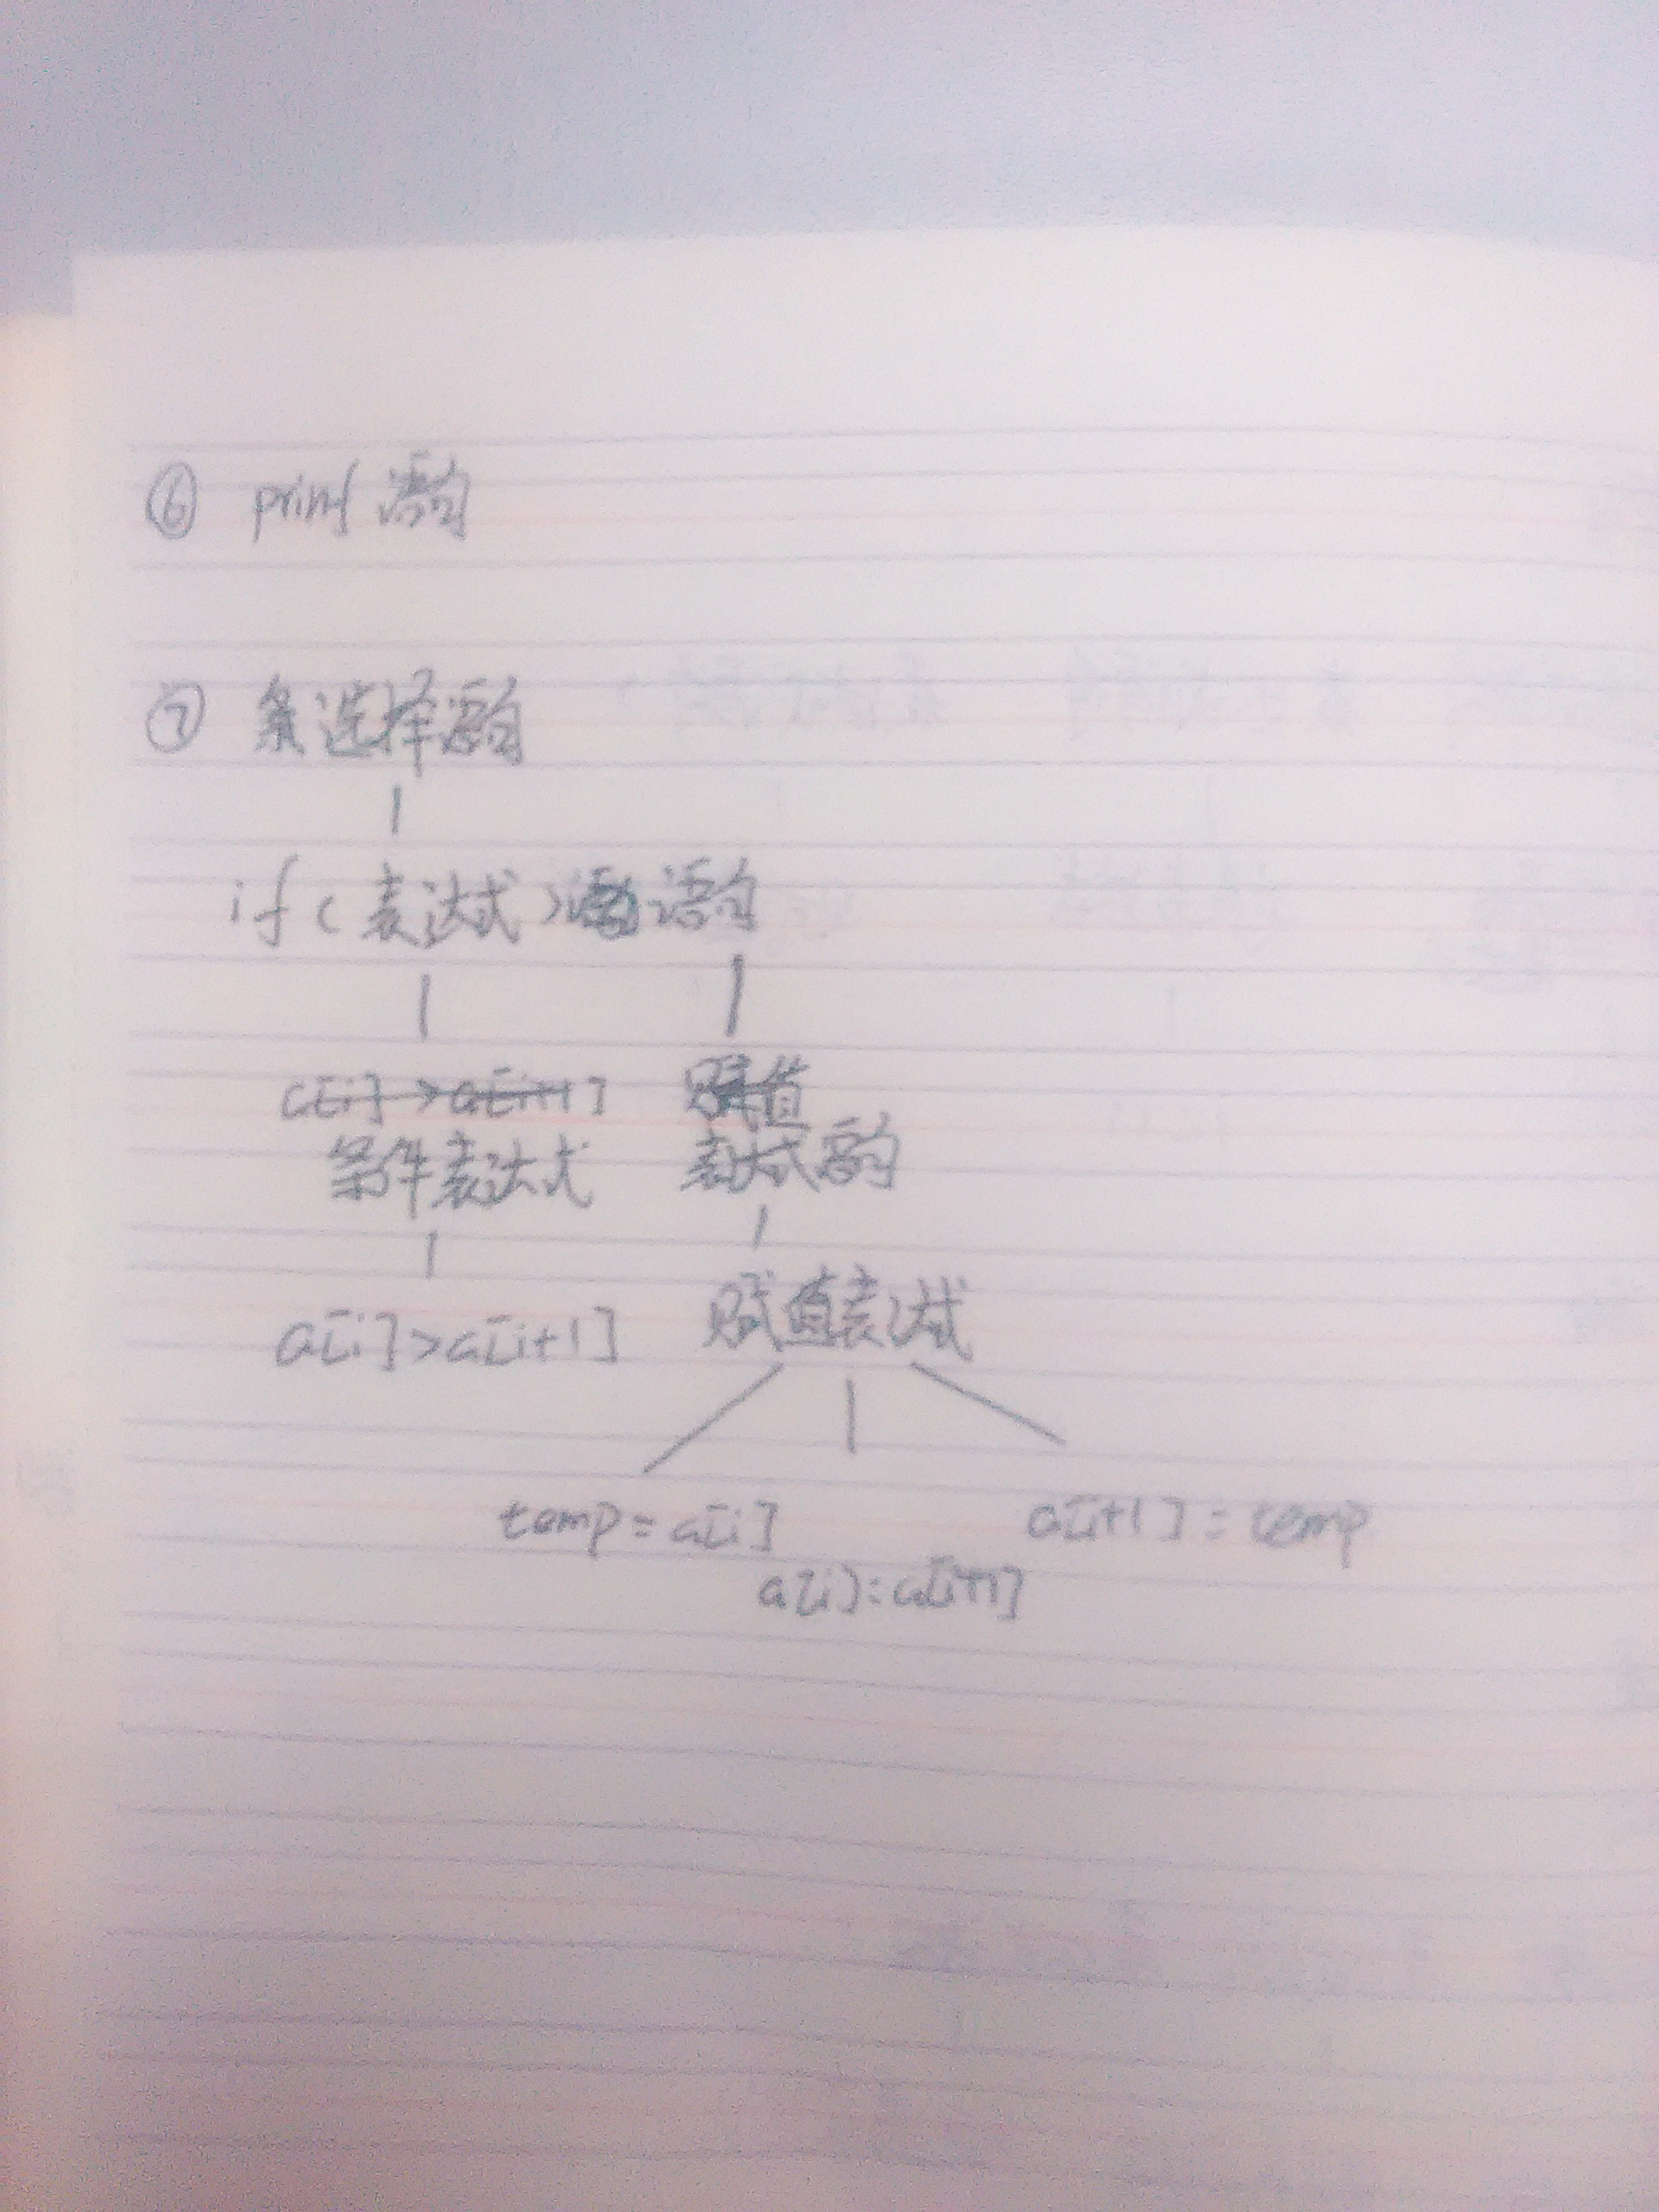 ⑥ print 语句
⑦ 选择语句
if(表达式)语句
c[i]>a[i+1] 赋值
条件表达式 表达式语句
a[i]>a[i+1] 赋值表达式
temp=a[i] a[i+1]=temp
a[i]=a[i+1]